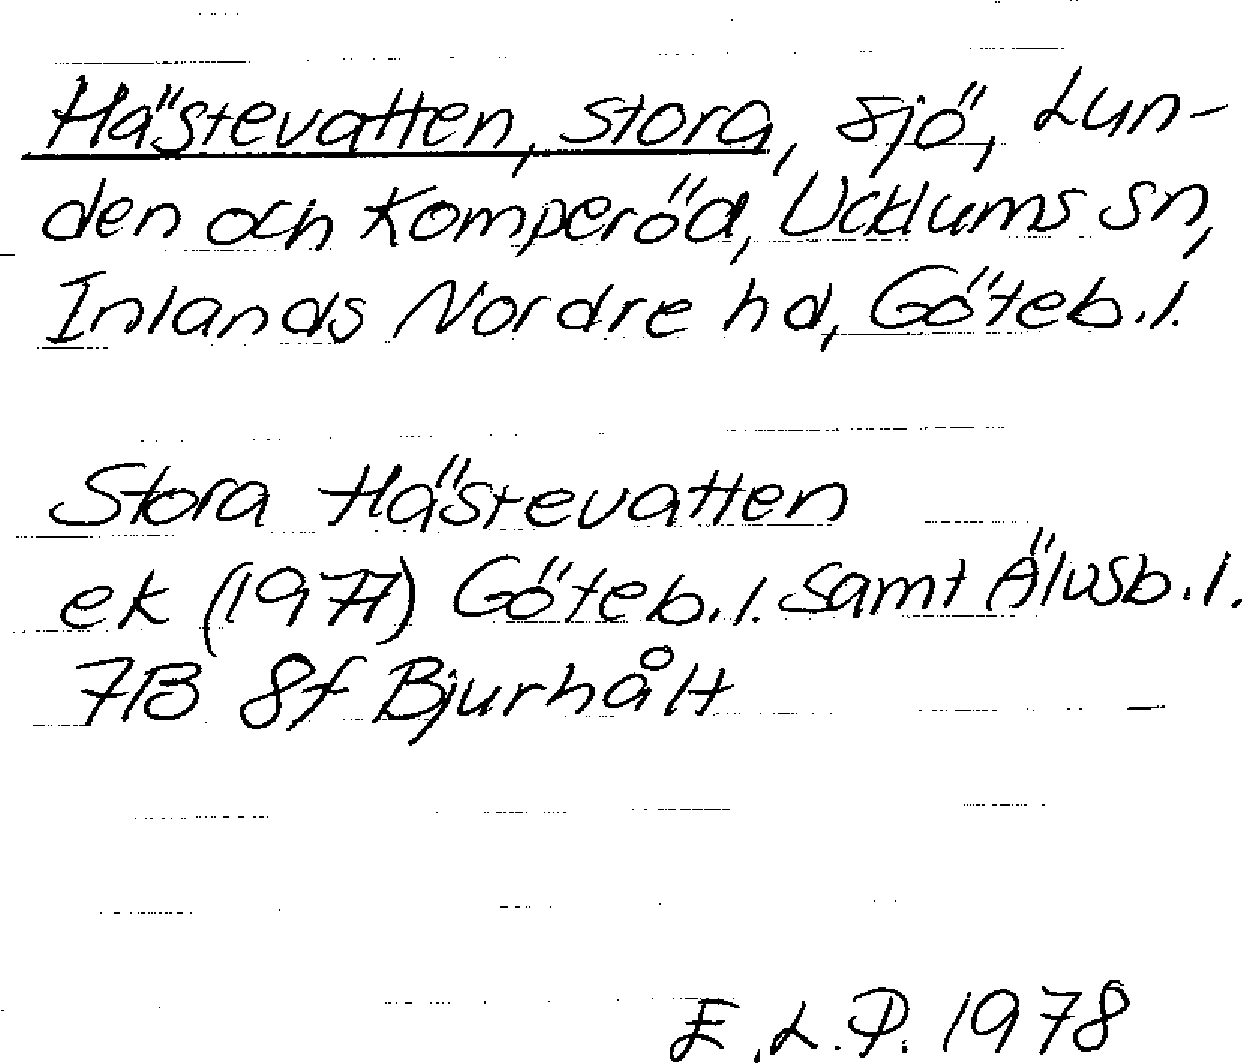 Hästevatten, stora, sjö, Lun-
den och Komperöd, Ucklums sn,
Inlands Nordre hd, Göteb.l.
Stora Hästevatten
ek (1977) Göteb.l. samt Älvsb.l.
7B 8f Bjurhålt
E.L.P. 1978